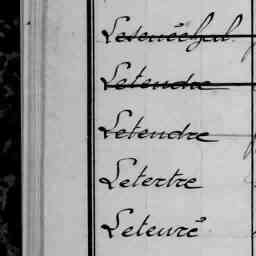 Lesenéchal
Letendre
Letendre
Letertre
Leteuré